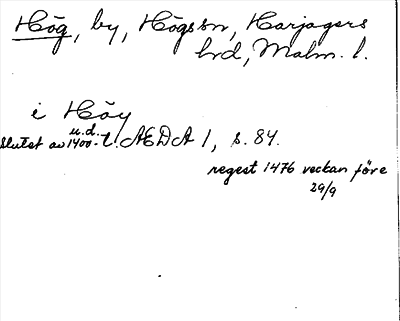 Hög, by, Högs sn, Harjagers
hrd, Malm. l.
i Höy
u.d.
slutet av 1400-t. AEDA 1, s. 84.
regest 1476 veckan före
29/9